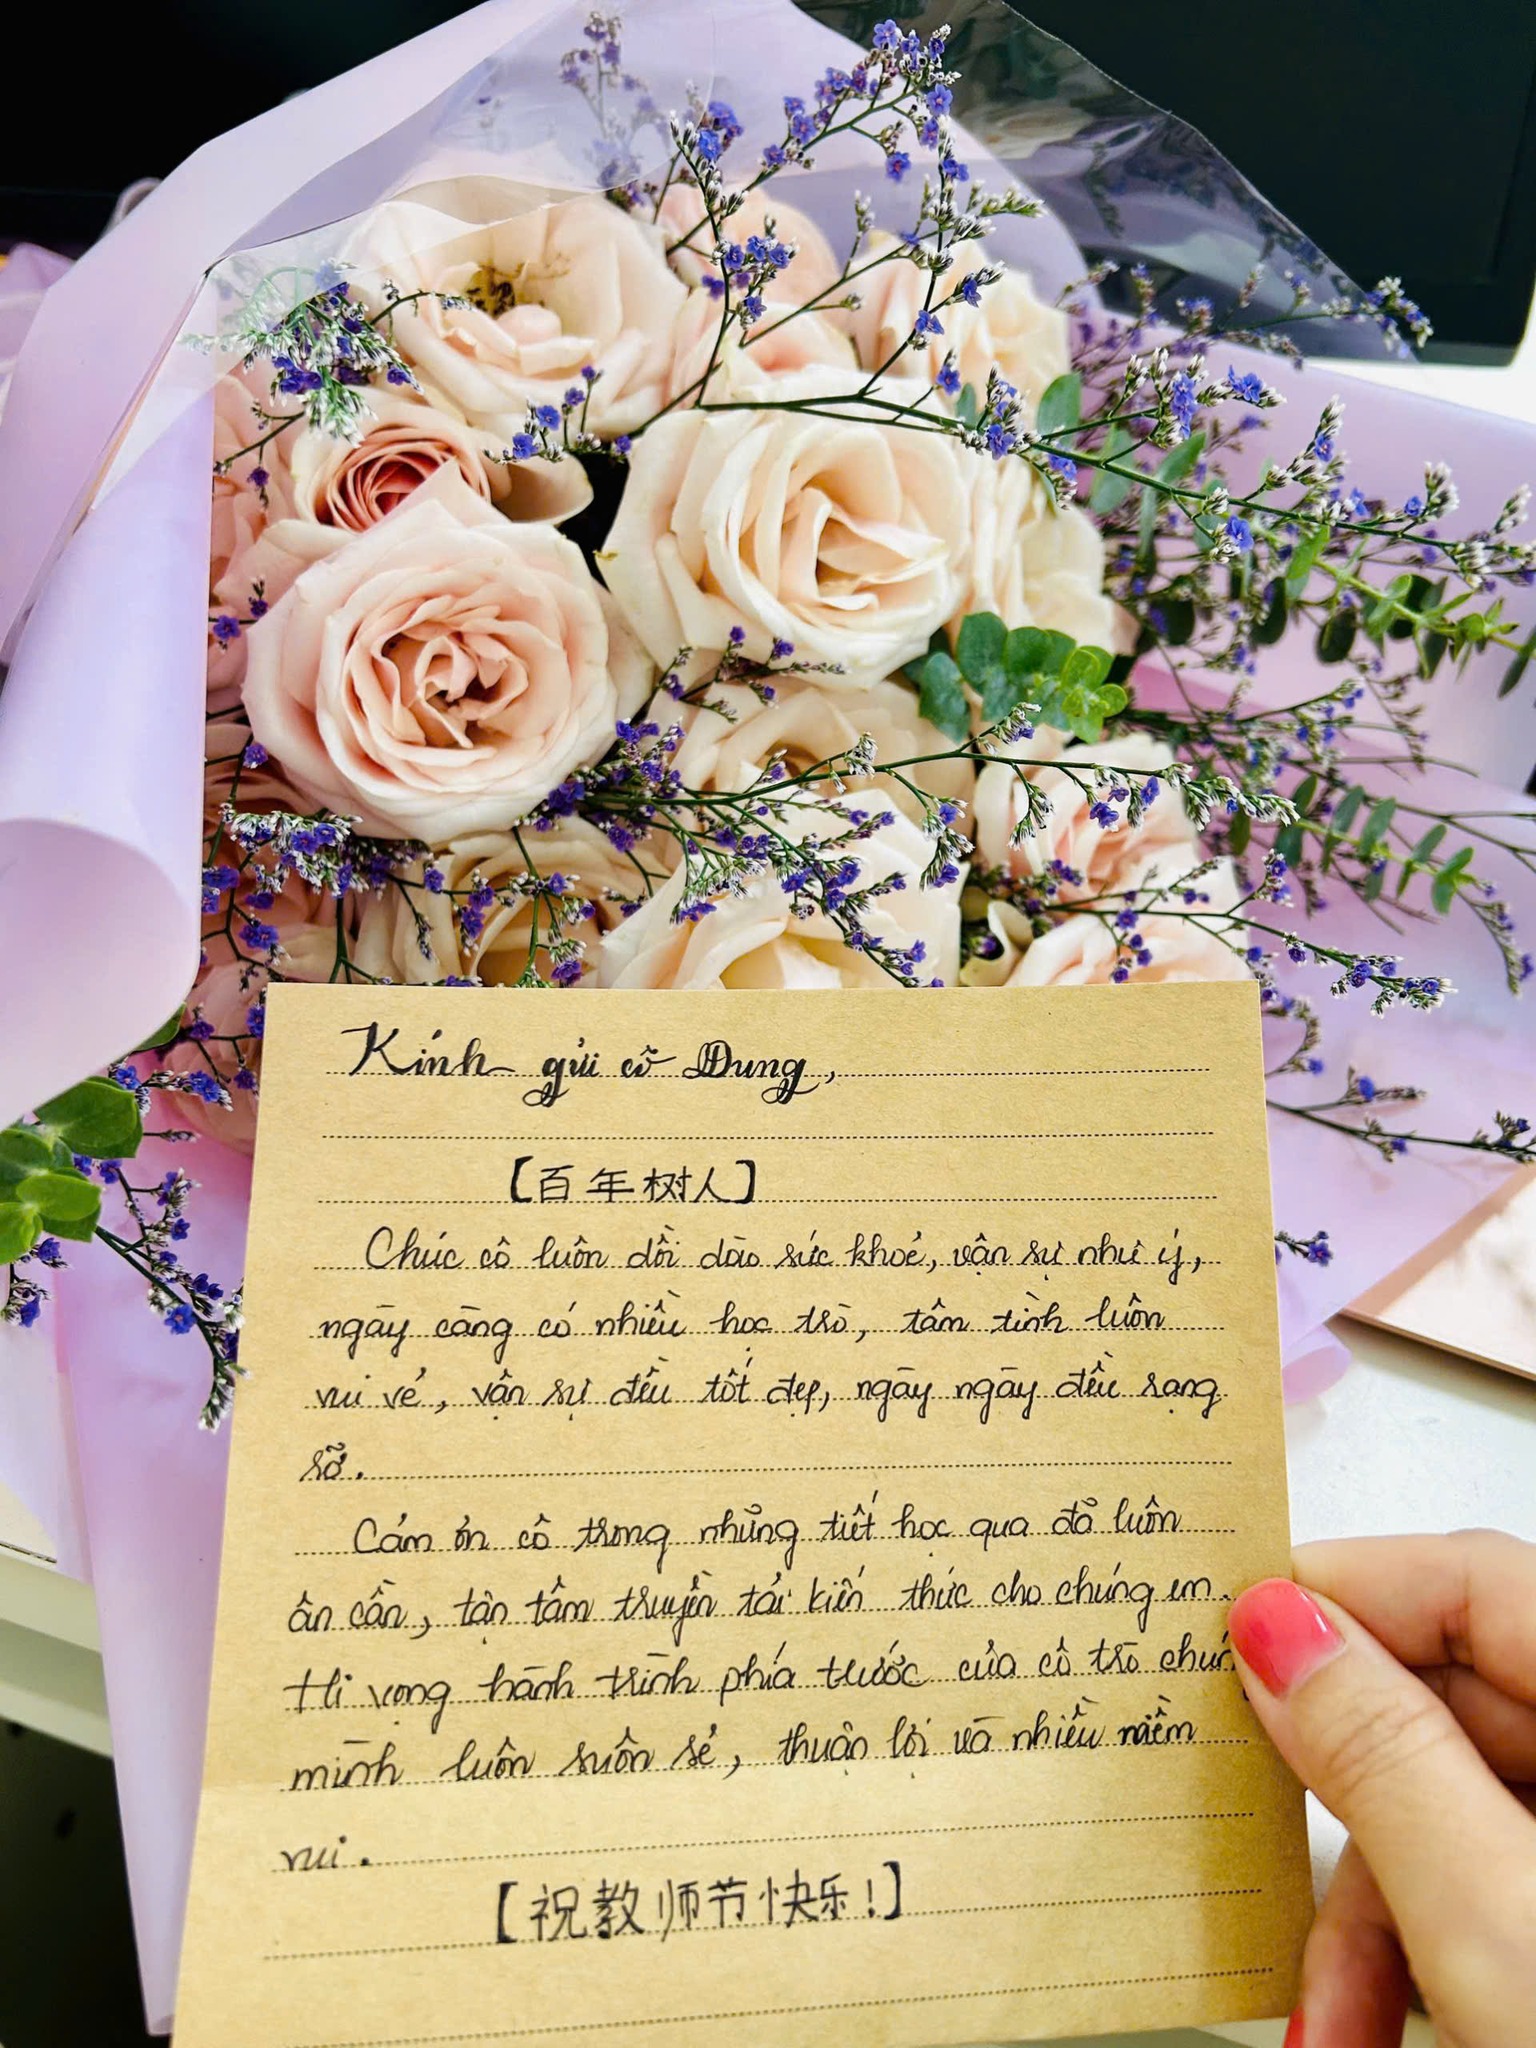 Kính gửi cô Dung,
【百年树人】
Chúc cô luôn dồi dào sức khoẻ, vạn sự như ý,
ngày càng có nhiều học trò, tâm tình luôn
vui vẻ, vạn sự đều tốt đẹp, ngày ngày đều rạng
rỡ.
Cảm ơn cô trong những tiết học qua đã luôn
ân cần, tận tâm truyền tải kiến thức cho chúng em.
Hi vọng hành trình phía trước của cô trò chún
mình luôn suôn sẻ, thuận lợi và nhiều niềm
vui.
【祝教师节快乐！】